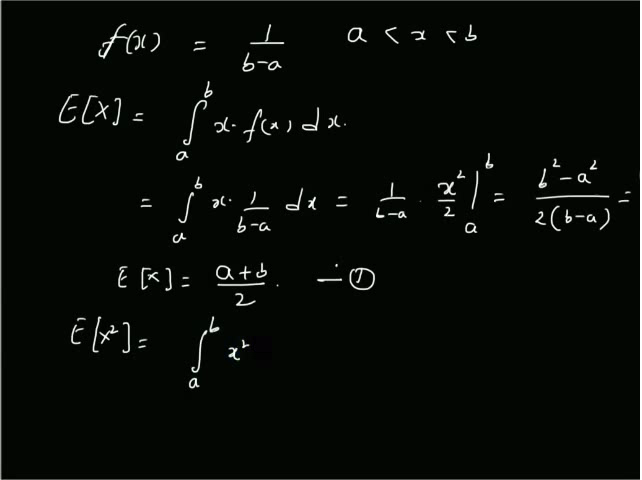 f(x) = 1/(b-a)   a < x < b
E[X] = ∫_a^b x· f(x) dx.
= ∫_a^b x· 1/(b-a) dx = 1/(b-a) · x²/2 |_a^b = (b²-a²)/(2(b-a)) =
E[x] = (a+b)/2 . — ①
E[x²] = ∫_a^b x²